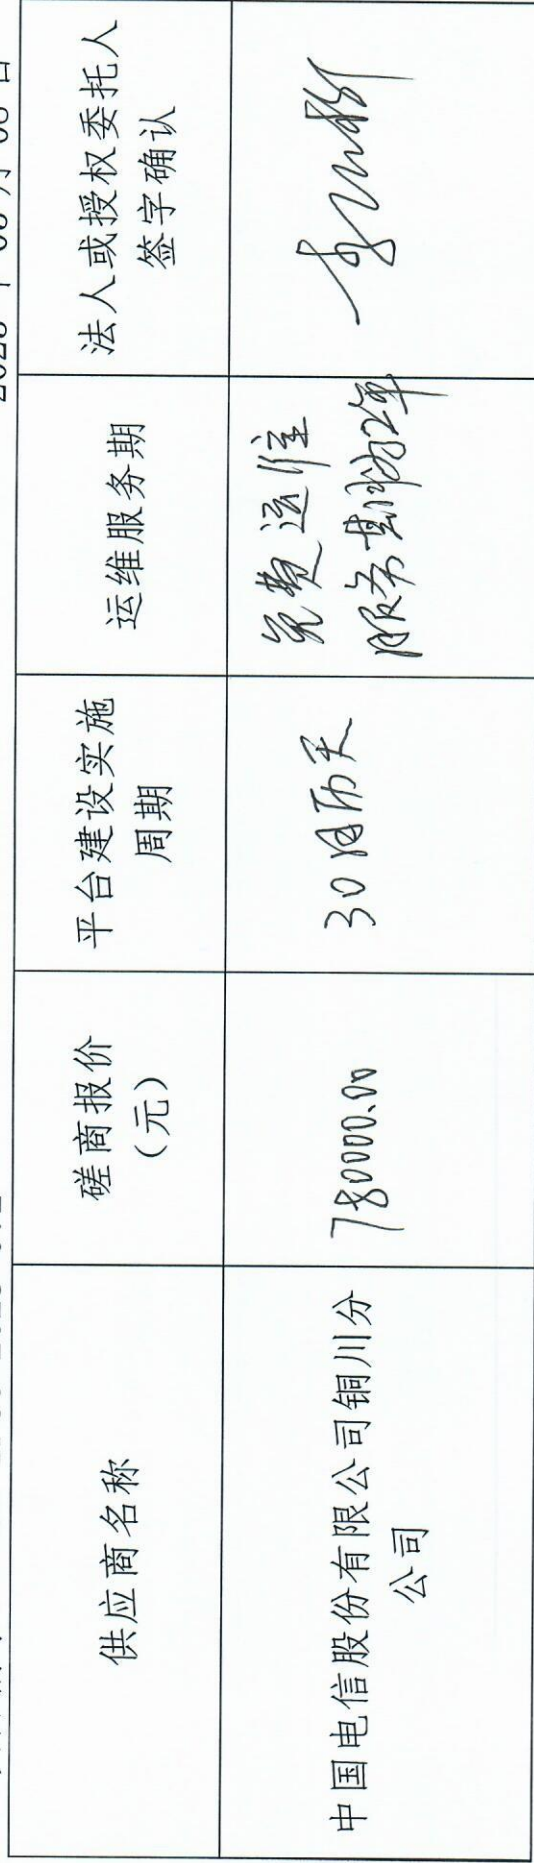 供应商名称
磋商报价
（元）
平台建设实施
周期
运维服务期
法人或授权委托人
签字确认
中国电信股份有限公司铜川分
公司
780000.00
30日历天
免费运维
服务期限2年